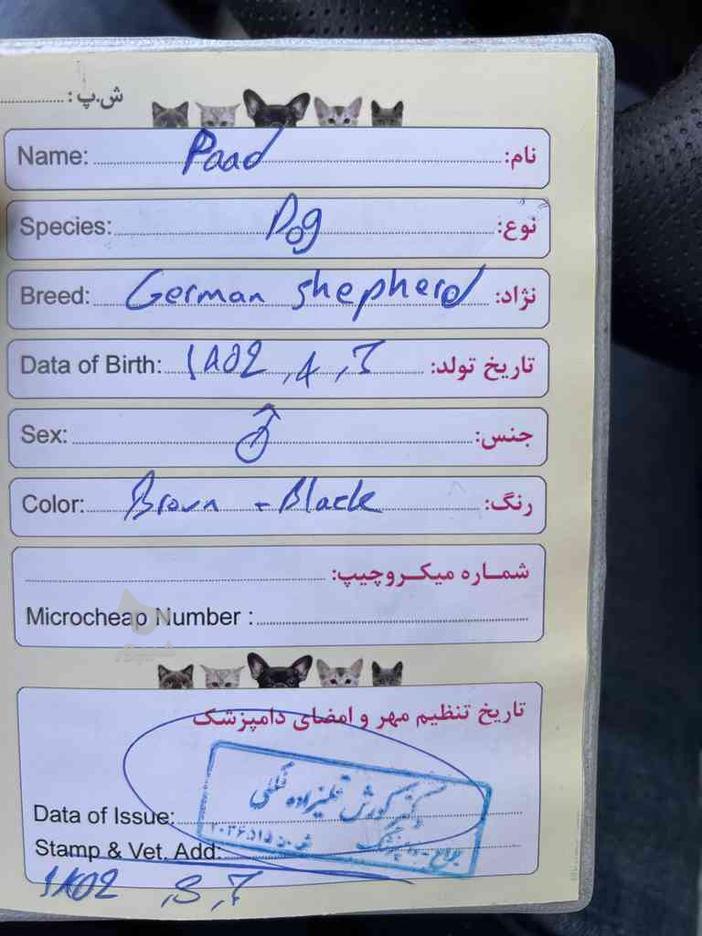 ش.پ:
Name: Paad نام:
Species: Dog نوع:
Breed: German shepherd نژاد:
Data of Birth: تاریخ تولد:
Sex: ♂ جنس:
Color: Brown - Black رنگ:
شماره میکروچیپ:
Microcheap Number :
تاریخ تنظیم مهر و امضای دامپزشک
دکتر کورش
Data of Issue:
Stamp & Vet. Add: